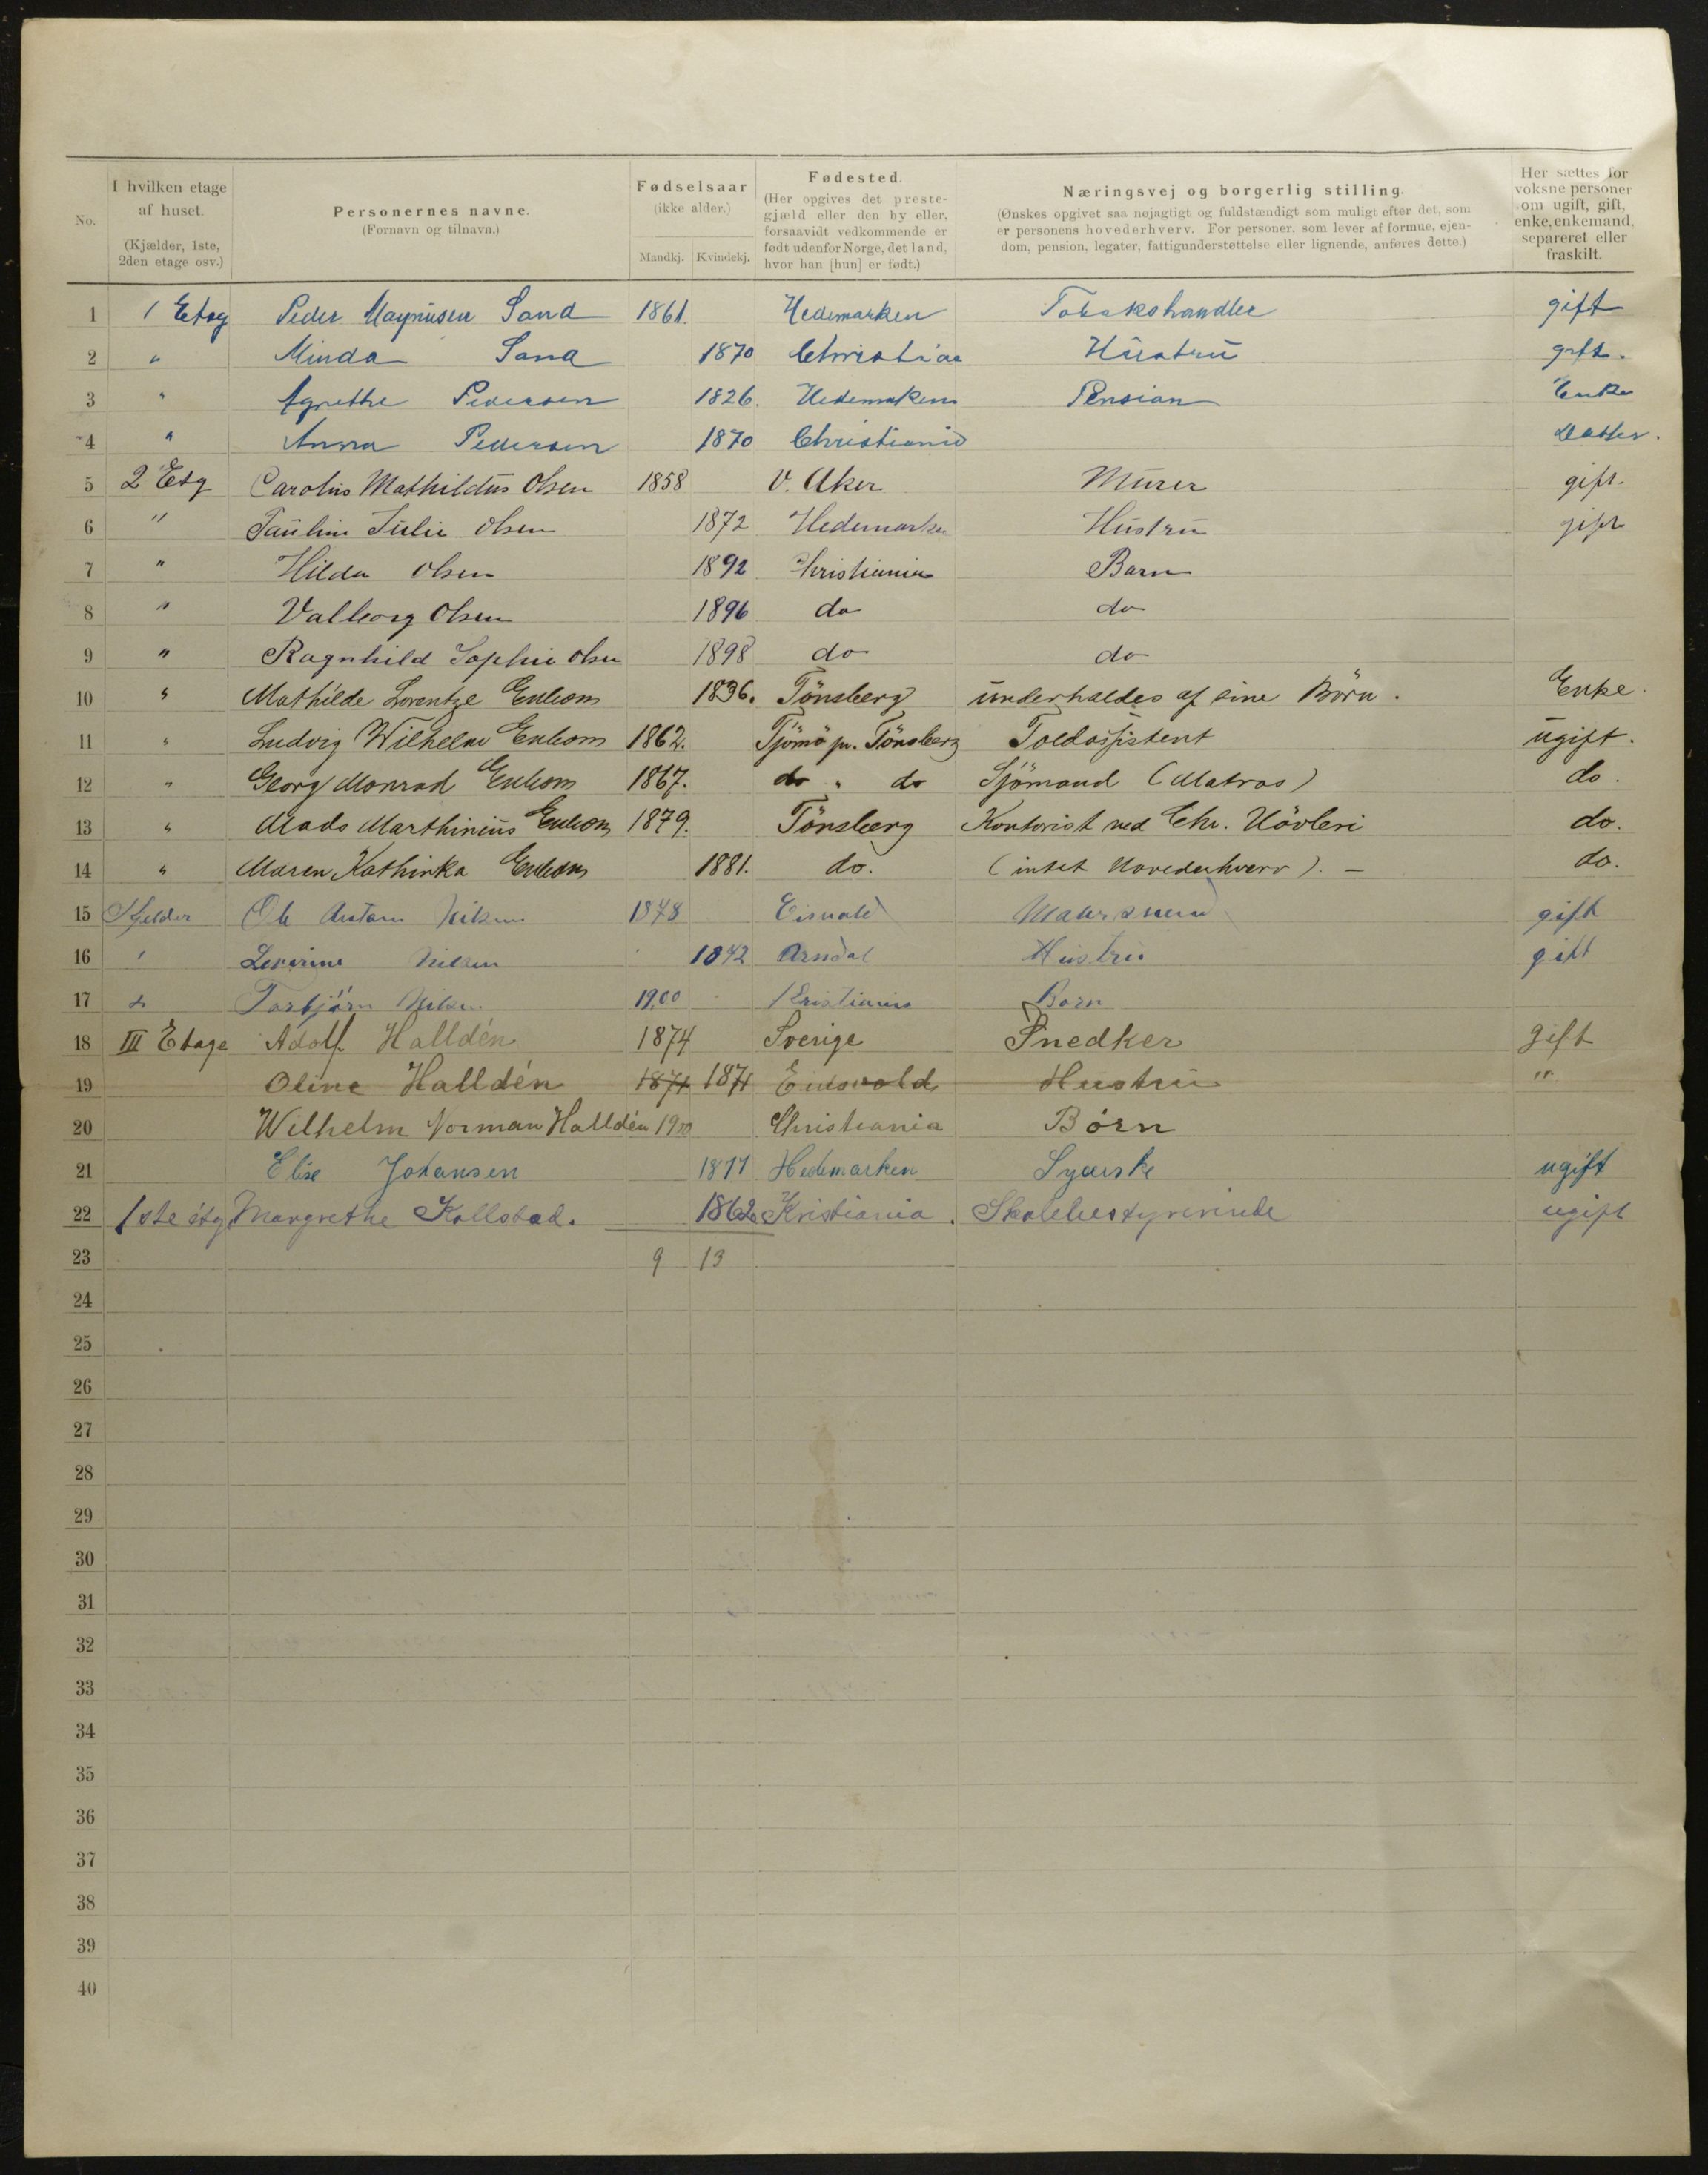 No. I hvilken etage af huset. (Kjælder, 1ste, 2den etage osv.) Personernes navne. (Fornavn og tilnavn.) Fødselsaar (ikke alder.) Mandkj. Kvindekj. Fødested. (Her opgives det prestegjæld eller den by eller, forsaavidt vedkommende er født udenfor Norge, det land, hvor han [hun] er født.) Næringsvej og borgerlig stilling. (Ønskes opgivet saa nøjagtigt og fuldstændigt som muligt efter det, som er personens hovederhverv. For personer, som lever af formue, ejendom, pension, legater, fattigunderstøttelse eller lignende, anføres dette.) Her sættes for voksne personer om ugift, gift, enke, enkemand, separeret eller fraskilt.
1 1 Etag Peder Magnusen Sand 1861. Hedemarken Tobakshandler gift
2 " Minda Sand 1870 Christiaa Hustru gift.
3 " Agnethe Pedersen 1826. Hedemarken Pension Enke
4 " Anna Pedersen 1870 Christiania Datter.
5 2 Etg Carolus Mathildus Olsen 1858 V. Aker Murer gift.
6 " Pauline Julie Olsen 1872 Hedemarken Hustru gift
7 " Hilda Olsen 1892 Christiania Barn
8 " Valborg Olsen 1896 do do
9 " Ragnhild Sophie Olsen 1898 do do
10 " Mathilde Lorentze 1836. Tönsberg underholdes af sine Börn. Enke.
11 " Ludvig Wilhelm 1862. Tjömö pr. Tönsberg Toldassistent ugift.
12 " Georg Monrad 1867. do " do Sjömand (Matros) do.
13 " Mads Marthinius 1879. Tönsberg Kontorist ved Chr. Hövleri do.
14 " Maren Kathinka 1881. do. (intet Hovederhverv). - do.
15 Kjelder Ole Nilsen 1848 gift
16 " Severine Nilsen 1842 Arndal Hustru gift
17 " Torbjörn Nilsen 1900 Kristiania Barn
18 III Etage Adolf Halldén 1874 Sverige Snedker gift
19 Oline Halldén 1871 1871 Eidsvold Hustru "
20 Wilhelm Norman Halldén 1900 Christiania Börn
21 Elise Johansen 1877 Hedemarken Syerske ugift
22 1ste etg Margrethe Kollstad. 1862 Kristiania. Skolebestyrerinde ugift
23 9 13
24
25
26
27
28
29
30
31
32
33
34
35
36
37
38
39
40